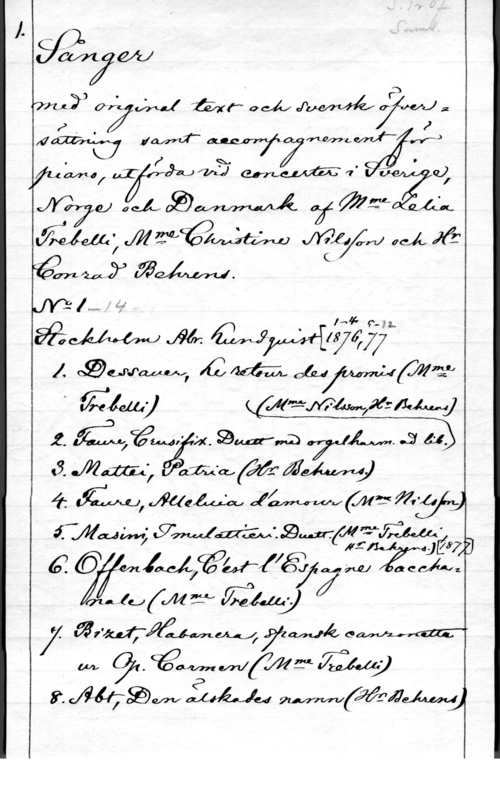 1.
S. Tr. Of.
Saml.
Sånger
med original text och svensk öfver-
sättning samt accompagnement för
piano, utförda vid concerter i Sverige,
Norge och Danmark af Mme Zelia
Trebelli, Mme Christine Nilsson och Hr
Conrad Behrens.
No 1-14
Stockholm Abr. Lundquist [1-4 1876, 5-12 77
1. Dessauer, Le retour des promis (Mme
Trebelli) (Mme Nilsson, Hr Behrens)
2. Faure, Crusifix. Duett med orgelharm. ad lib.)
3. Mattei, Patria (Hr Behrens)
4. Faure, Alleluia d'amour (Mme Nilsson)
5. Masini, I mulattieri. Duett. (Mme Trebelli,
Hr Behrens.) [1877]
6. Offenbach, C'est l'Espagne baccha-
nale (Mme Trebelli.)
7. Bizet, Habanera, spansk canzonetta
ur Op. Carmen (Mme Trebelli)
8. Abt, Den älskades namn (Hr Behrens)